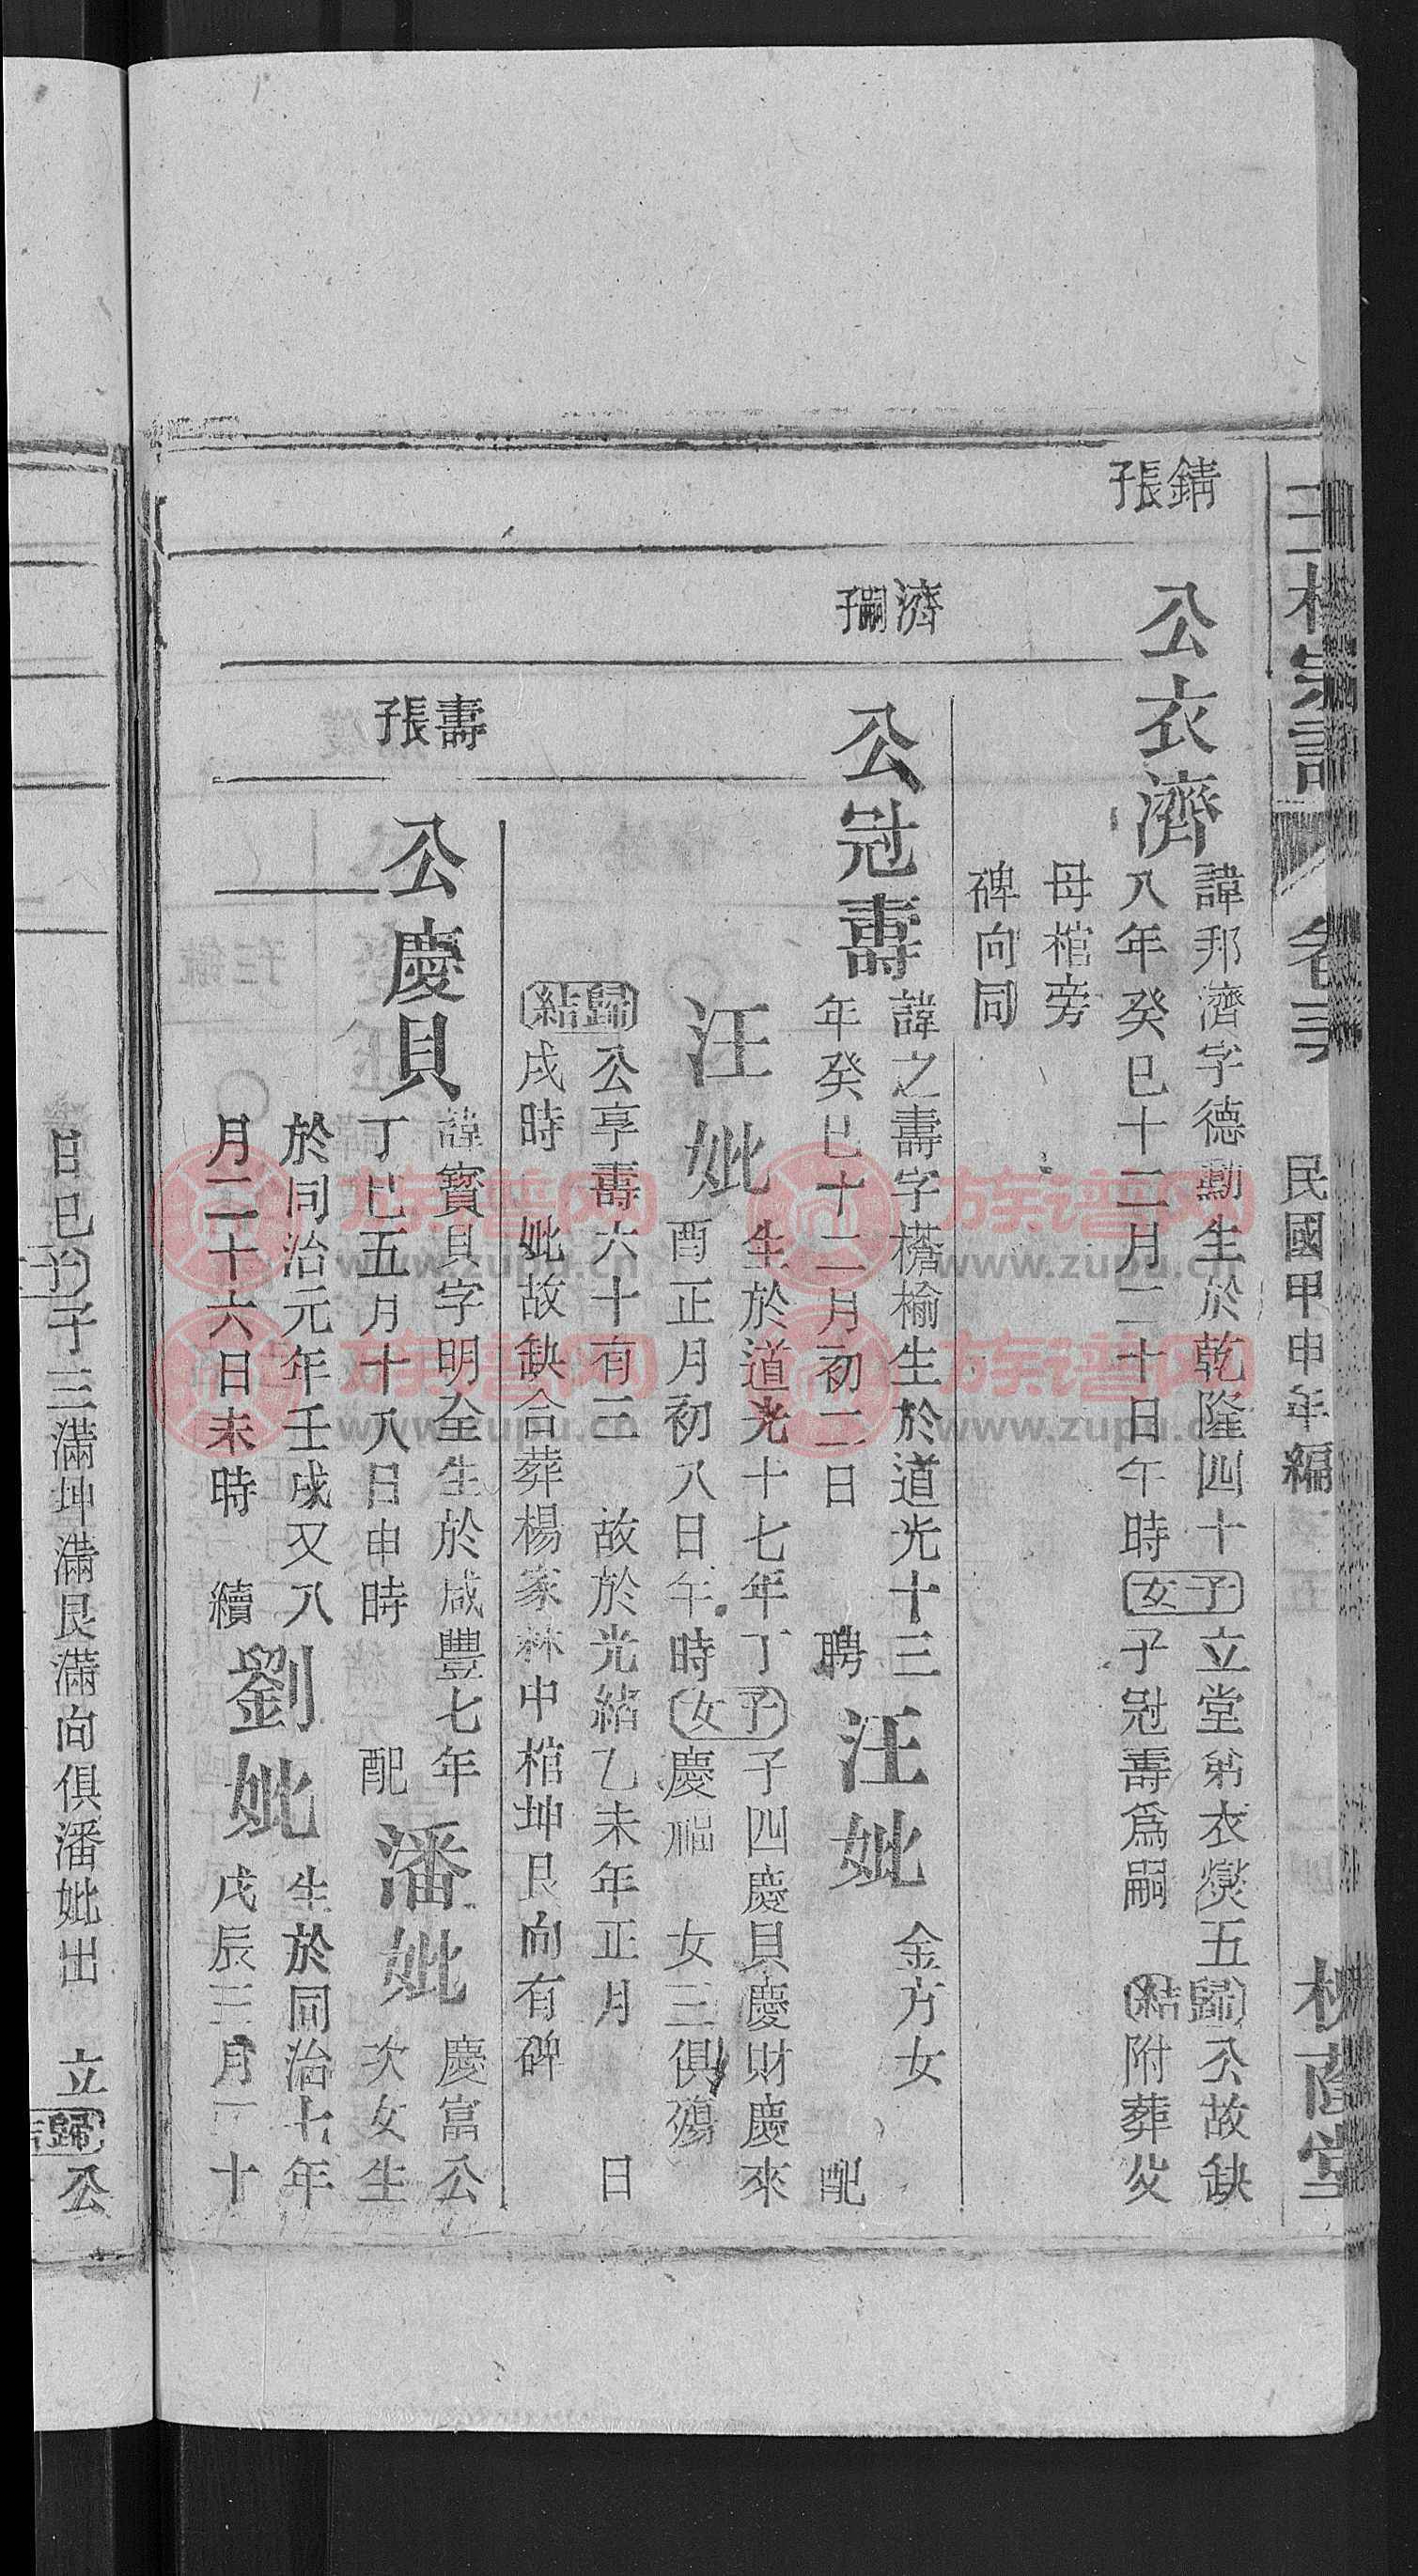 宗譜
卷三
民國甲申年編
蔭堂
錆張子
公衣濟
諱邦濟字德勳生於乾隆四十
八年癸巳十二月二十日午時
子女
立堂弟衣燮五
子冠壽爲嗣
歸結
公故缺
附葬父
母棺旁
碑向同
濟嗣子
公冠壽
諱之壽字榰榆生於道光十三
年癸巳十二月初二日
聘
汪妣
金方女
配
汪妣
生於道光十七年丁
酉正月初八日午時
子女
子四慶貝慶財慶來
慶福
女三俱殤
歸結
公享壽六十有三
故於光緒乙未年正月
日
戌時
妣故缺合葬楊家林中棺坤艮向有碑
壽長子
公慶貝
諱寶貝字明全生於咸豐七年
丁巳五月十八日申時
配
潘妣
慶富公
次女生
於同治元年壬戌又八
月二十六日未時
續
劉妣
生於同治七年
戊辰三月二十
日巳
子
子三滿坤滿艮滿向俱潘妣出
立
歸
公
族谱网
www.zupu.cn
族谱网
www.zupu.cn
族谱网
www.zupu.cn
族谱网
www.zupu.cn